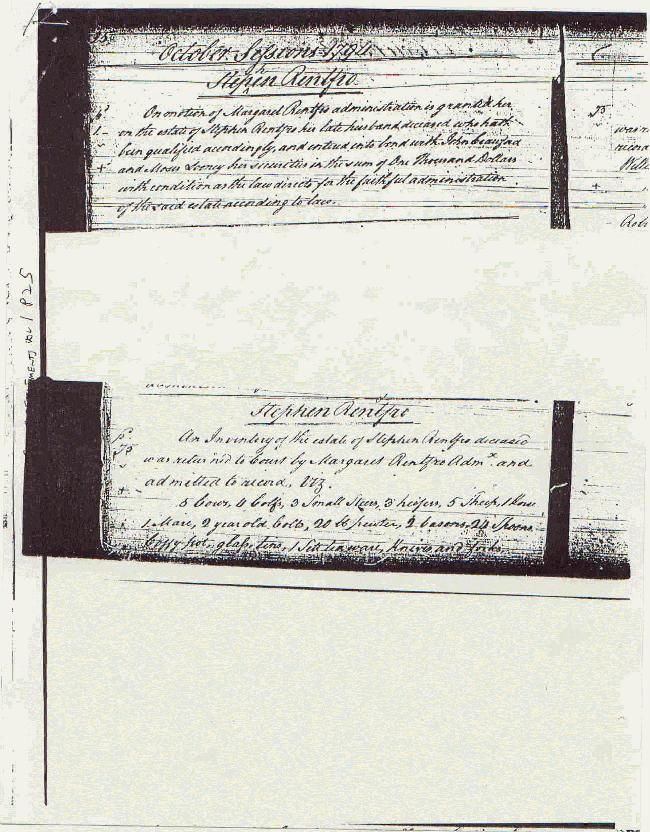 October Sessions 1794
Stephen Rentfro
On motion of Margaret Rentfro administration is granted her
on the estate of Stephen Rentfro her late husband deceased who hath
been qualified accordingly, and entered into bond with John
and Moses Looney her securities in the sum of One Thousand Dollars
with condition as the law directs for the faithful administration
of the said estate according to law.
Stephen Rentfro
An Inventory of the estate of Stephen Rentfro deceased
was returned to Court by Margaret Rentfro Admx. and
admitted to record, Viz.
5 Cows, 4 Calfs, 3 Small Steers, 3 heifers, 5 Sheep, 1 Horse
1 Mare, 2 year old Colts, 20 lb pewter, 2 basons, 24 Spoons
Knives and forks